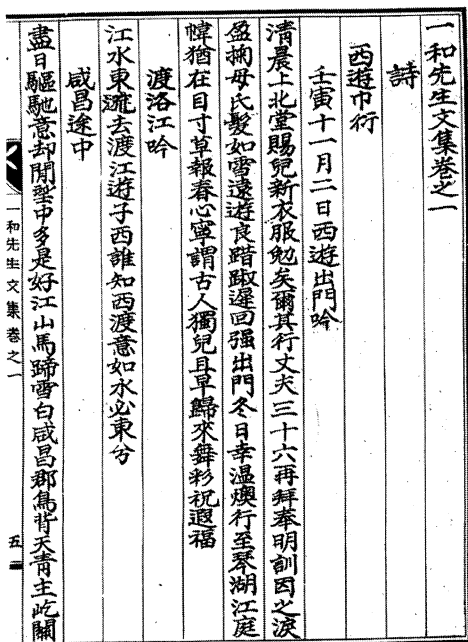 一和先生文集卷之一
詩
西遊巾衍
壬寅十一月二日西遊出門吟
淸晨上北堂賜兒新衣服勉矣爾其行丈夫三十六再拜奉明訓因之淚
盈掬母氏髮如雪遠遊良踖踧遲回强出門冬日幸温燠行至琴湖江庭
幃猶在目寸草報春心寧謂古人獨兒且早歸來舞彩祝遐福
渡洛江吟
江水東流去渡江遊子西誰知西渡意如水必東兮
咸昌途中
盡日驅馳意却閒望中多是好江山馬蹄雪白咸昌郡鳥背天靑主屹關
一和先生文集卷之一
五